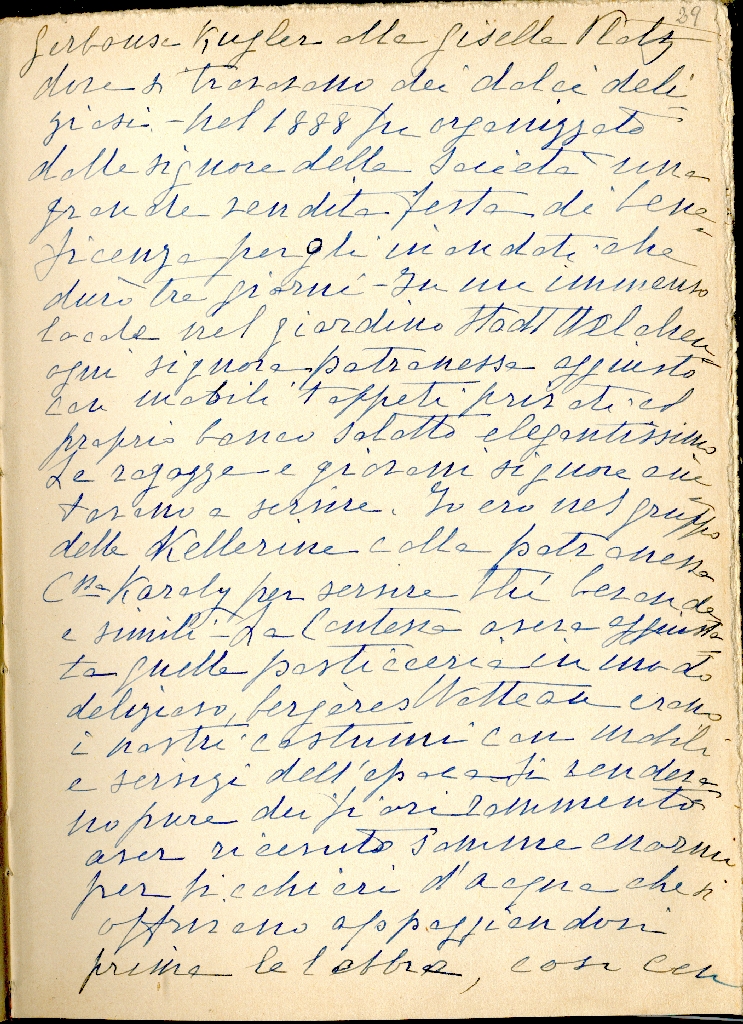 29
Gerbouse Kugler alla Gisella Platz
dove si trovavano dei dolci deli=
ziosi - nel 1888 fu organizzato
dalle signore della Società una
grande vendita festa di bene=
ficenza per gli inondati che
durò tre giorni - In un immenso
locale nel giardino Stadt
ogni signora patronessa aggiustò
con mobili tappeti privati il
proprio banco salotto elegantissimo
Le ragazze e giovani signore aiu=
tavano a servire. Io ero nel gruppo
delle Kellerine colla patronessa
Cssa Karoly per servire thé bevande
e simili - La Contessa aveva aggiusta=
ta quella pasticceria in modo
delizioso, bergères Watteau erano
i nostri costumi con mobili
e servizi dell'epoca Si vendeva=
no pure dei fiori rammento
aver ricevuto somme enormi
per bicchieri d'acqua che si
offrivano appoggiandovi
prima le labbra, così con